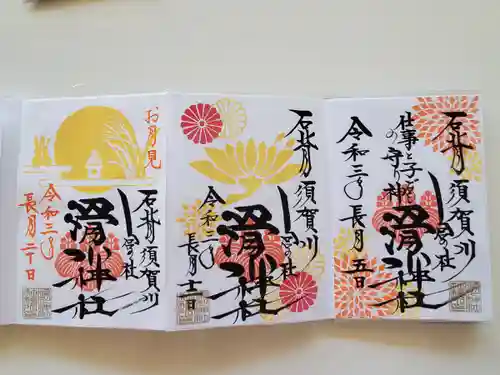 石背
須賀川
の社
仕事と子どもの守り神
滑川神社
令和三年長月五日
石背
須賀川
の社
滑川神社
令和三年
長月
お月見
石背須賀川
の社
滑川神社
令和三年
長月二十日